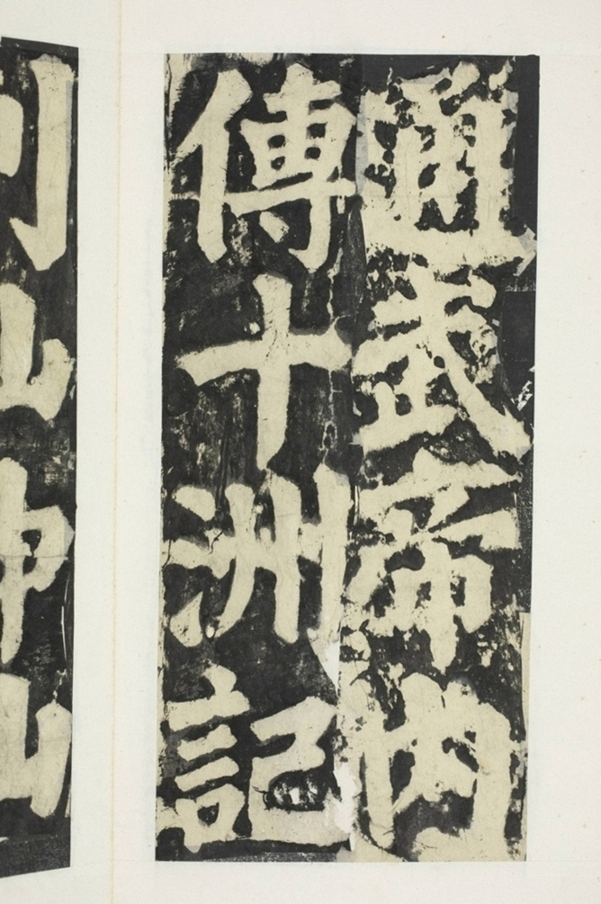 通武帝內
傳十洲記